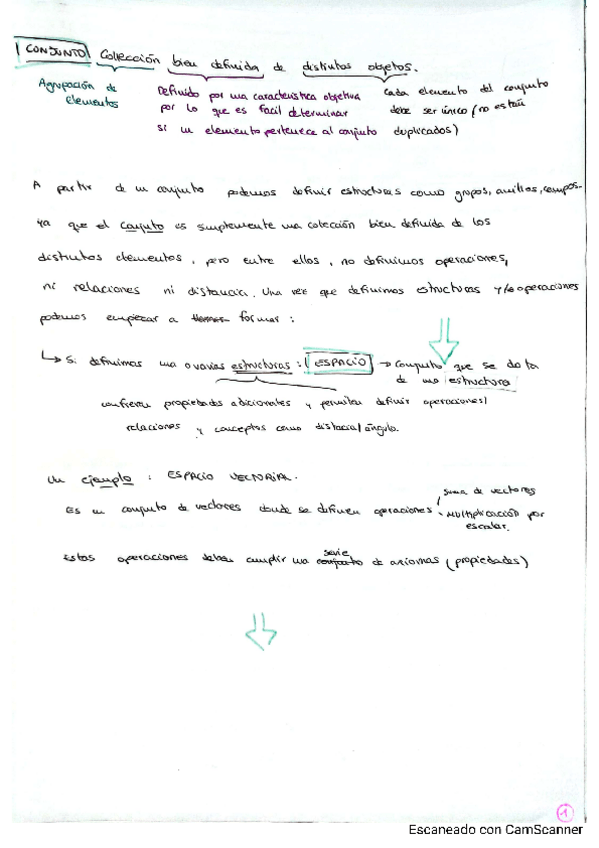 CONJUNTO Colección bien definida de distintos objetos.
Agrupación de elementos
Definido por una característica objetiva
por lo que es facil determinar
si un elemento pertenece al conjunto
cada elemento del conjunto
debe ser único (no están
duplicados)
A partir de un conjunto podemos definir estructuras como grupos, anillos, campos.
ya que el conjunto es simplemente una colección bien definida de los
distintos elementos, pero entre ellos, no definimos operaciones,
ni relaciones ni distancia. Una vez que definimos estructuras y/o operaciones
podemos empezar a formar:
Si definimos una o varias estructuras: ESPACIO → Conjunto que se dota
de una estructura
confieren propiedades adicionales y permiten definir operaciones/
relaciones y conceptos como distacia/ángulo.
Un ejemplo: ESPACIO VECTORIAL.
Es un conjunto de vectores donde se definen operaciones
suma de vectores
Multiplicación por
escalar.
Estas operaciones deben cumplir una serie conjunto de axiomas (propiedades)
1
Escaneado con CamScanner